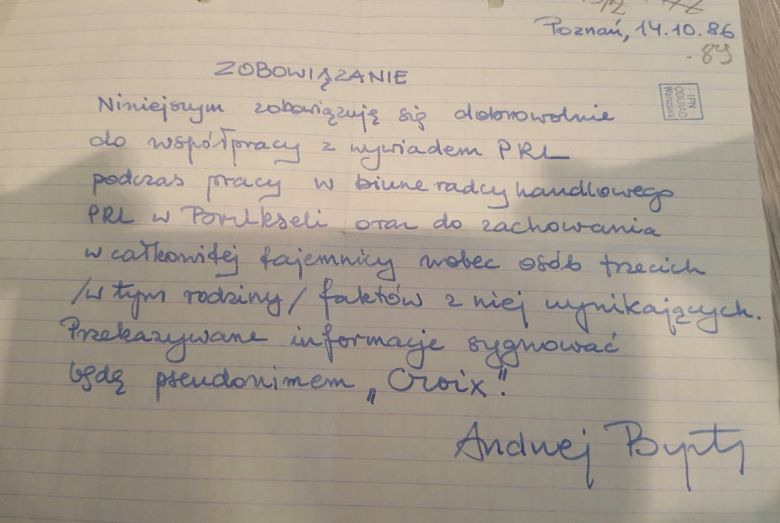 Poznań, 14.10.86
- 89
ZOBOWIĄZANIE
IPN
Warszawa
Niniejszym zobowiązuję się dobrowolnie
do współpracy z wywiadem PRL
podczas pracy w biurze radcy handlowego
PRL w Brukseli oraz do zachowania
w całkowitej tajemnicy wobec osób trzecich
/w tym rodziny/ faktów z niej wynikających.
Przekazywane informacje sygnować
będę pseudonimem „Croix”.
Andrzej Byrt